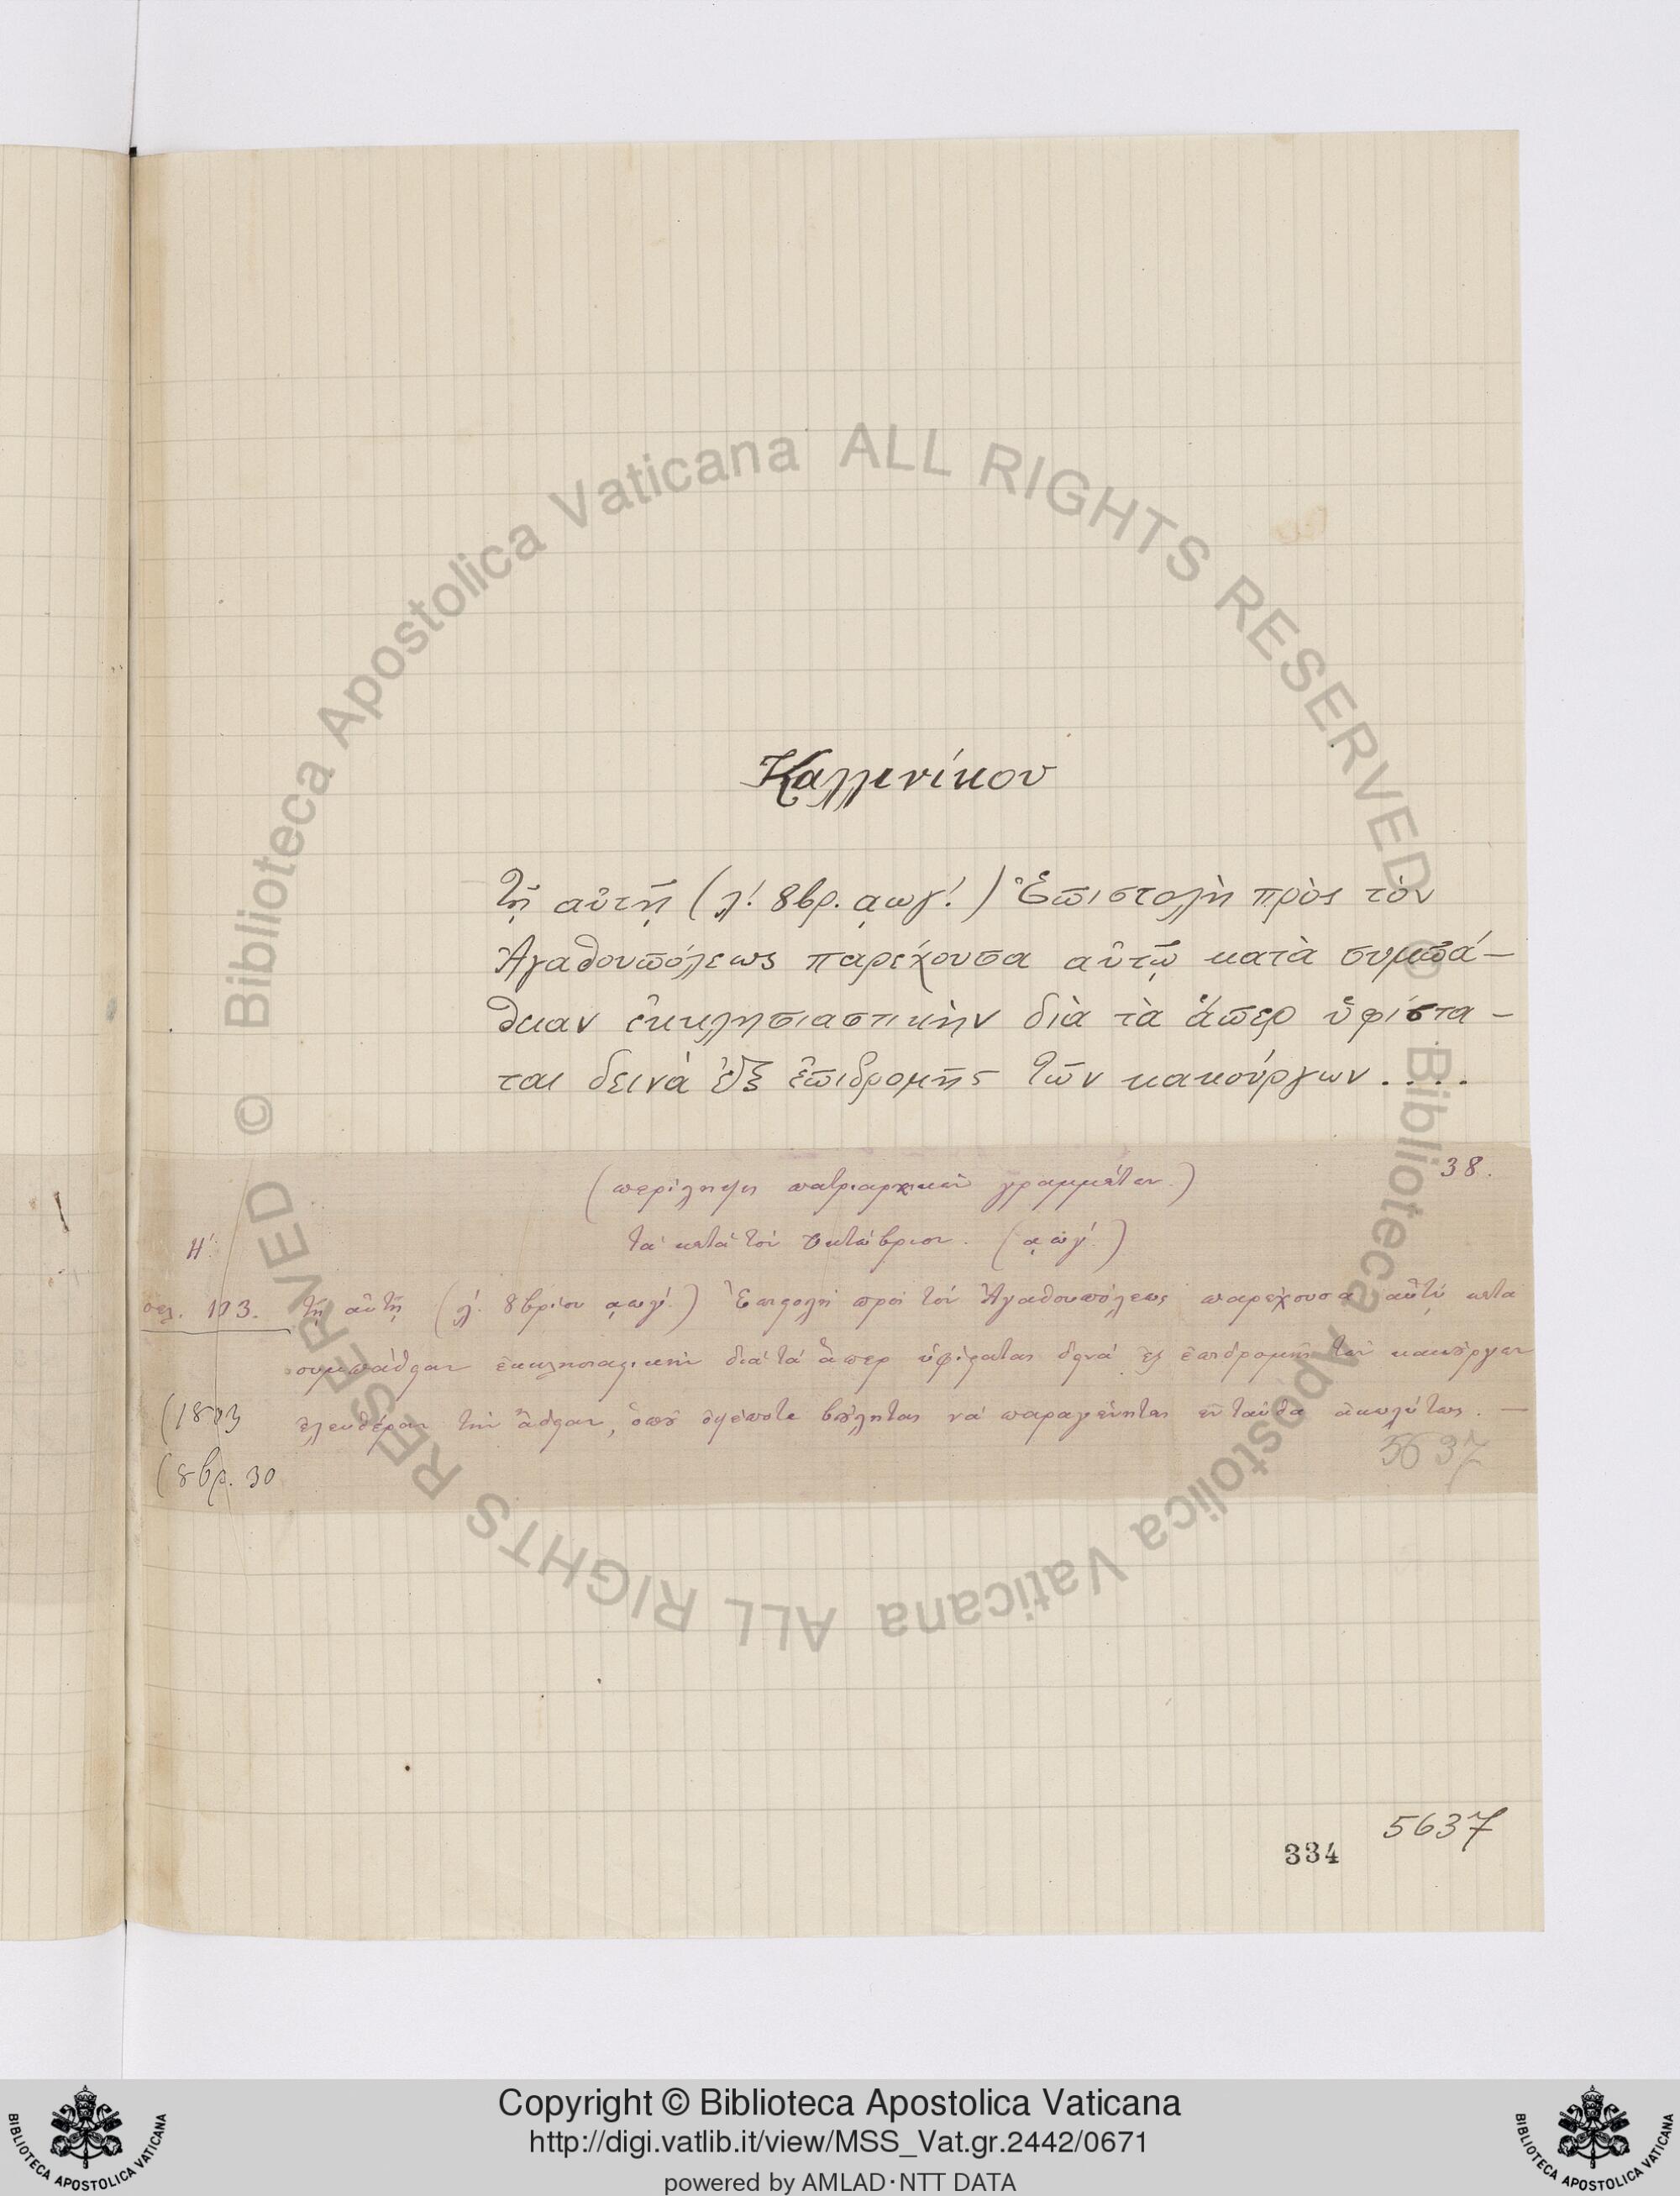 Καλλινίκου
Τῇ αὐτῇ (λ! 8βρ. αωγ!) Ἐπιστολὴ πρὸς τὸν
Ἀγαθουπόλεως παρέχουσα αὐτῷ κατὰ συμπά-
θειαν ἐκκλησιαστικὴν διὰ τὰ ἅπερ ὑφίστα-
ται δεινὰ ἐξ ἐπιδρομῆς τῶν κακούργων....
38.
(περίληψις πατριαρχικῶν γραμμάτων.)
τὰ κατὰ τὸν Ὀκτώβριον. (αωγ!)
Η!
σελ. 103. τῇ αὐτῇ (λ! 8βρίου αωγ!) Ἐπιστολὴ πρὸς τὸν Ἀγαθουπόλεως παρέχουσα αὐτῷ κατὰ
συμπάθειαν ἐκκλησιαστικὴν διὰ τὰ ἅπερ ὑφίσταται δεινὰ ἐξ ἐπιδρομῆς τῶν κακούργων
(1803 ἐλευθέραν τὴν ἄδειαν, ὁποῦ ὁψέποτε βούληται νὰ παραγένηται ἐνταῦθα ἀκωλύτως. —
(8βρ. 30
5637
5637
334
© Biblioteca Apostolica Vaticana ALL RIGHTS RESERVED
© Biblioteca Apostolica Vaticana ALL RIGHTS RESERVED
BIBLIOTECA APOSTOLICA VATICANA
Copyright © Biblioteca Apostolica Vaticana
http://digi.vatlib.it/view/MSS_Vat.gr.2442/0671
powered by AMLAD·NTT DATA
BIBLIOTECA APOSTOLICA VATICANA